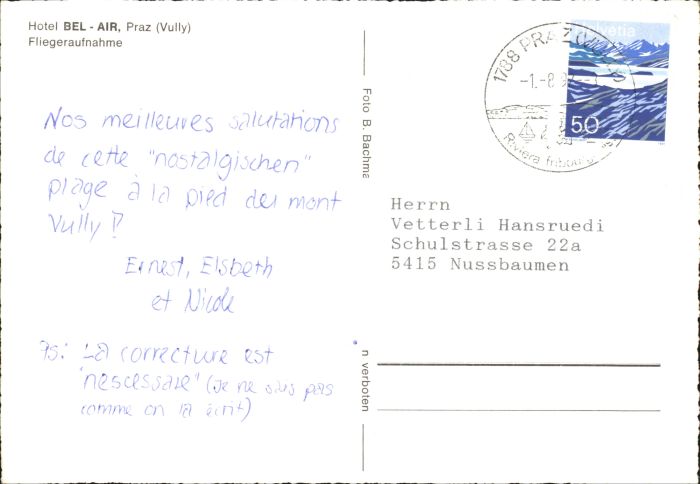 Hotel BEL - AIR, Praz (Vully)
Fliegeraufnahme
Nos meilleures salutations
de cette "nostalgischen"
plage à la pied du mont
Vully!
Ernest, Elsbeth
et Nicole
PS: La correcture est
"nescessaie" (je ne sais pas
comme on la écrit)
Foto B. Bachma
n verboten
1788 PRAZ (VULLY)
-1.-8.
Riviera fribourg
Helvetia
50
Herrn
Vetterli Hansruedi
Schulstrasse 22a
5415 Nussbaumen